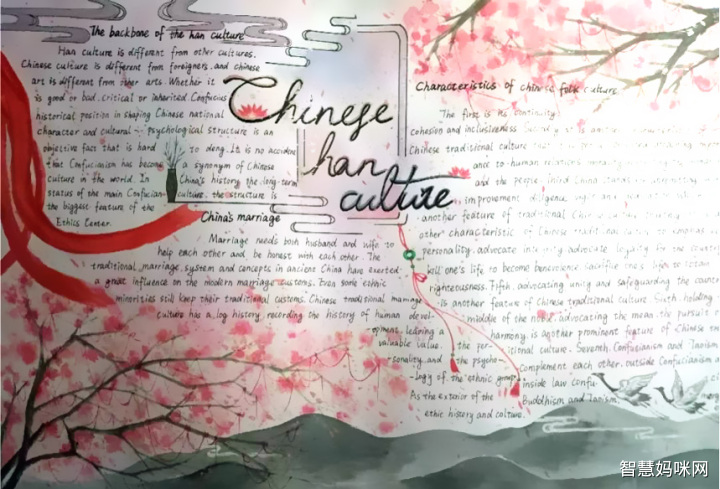 The backbone of the han culture
Han culture is different from other cultures.
Chinese culture is different from foreigners, and chinese
art is different from other arts. Whether it
is good or bad, critical or inherited Confucius
historical position in shaping Chinese national
character and cultural - psychological structure is an
objective fact that is hard to deny. It is no accident
that Confucianism has become a synonym of Chinese
culture in the world. In China's history the long-term
status of the main Confucian culture, the structure is
the biggest feature of the
Ethics Center.
Chinese
han
culture
China's marriage
Marriage needs both husband and wife to
help each other and be honest with each other. The
traditional marriage system and concepts in ancient China have exerted
a great influence on the modern marriage customs. Even some ethnic
minorities still keep their traditional customs. Chinese traditional marriage
culture has a log history, recording the history of human devel-
-opment, leaving a
valuable value. the per-
-sonality and the psycho-
-logy of the ethnic group
As the exterior of the
ethic history and culture.
Characteristics of chinese folk culture
The first is its continuity
cohesion and inclusiveness. Secondly it is another
Chinese traditional culture that
ance to human relations
and the people. Third China
improvement, diligence
another feature of traditional Chinese culture
other characteristic of Chinese traditional culture
personality, advocate integrity advocate loyalty for the country
kill one's life to become benevolence sacrifice one's life to
righteousness. Fifth, advocating unity and safeguarding the country
is another feature of Chinese traditional culture. Sixth holding
middle of the note, advocating the mean, the pursuit
harmony is another prominent feature of Chinese
itional culture. Seventh, Confucianism and Taoism
Complement each other, outside Confucianism
inside law confu-
Buddhism and Taoism.
智慧妈咪网